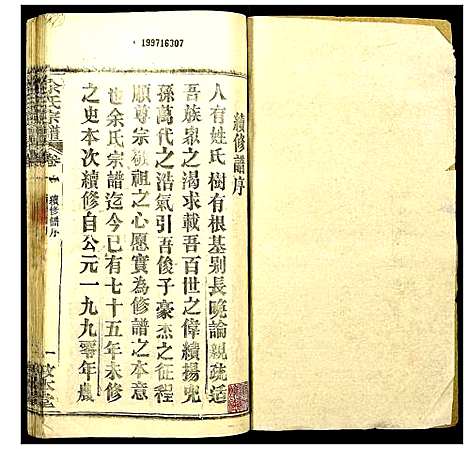 199716307
續修譜序
人有姓氏樹有根基别長曉論親疏适
吾族衆之渴求載吾百世之偉績揚兜
孫萬代之浩氣引吾俊子豪杰之征程
順尊宗敬祖之心愿實為修譜之本意
也余氏宗譜迄今已有七十五年未修
之史本次續修自公元一九九零年農
余氏宗譜
卷
續修譜序
一
堂